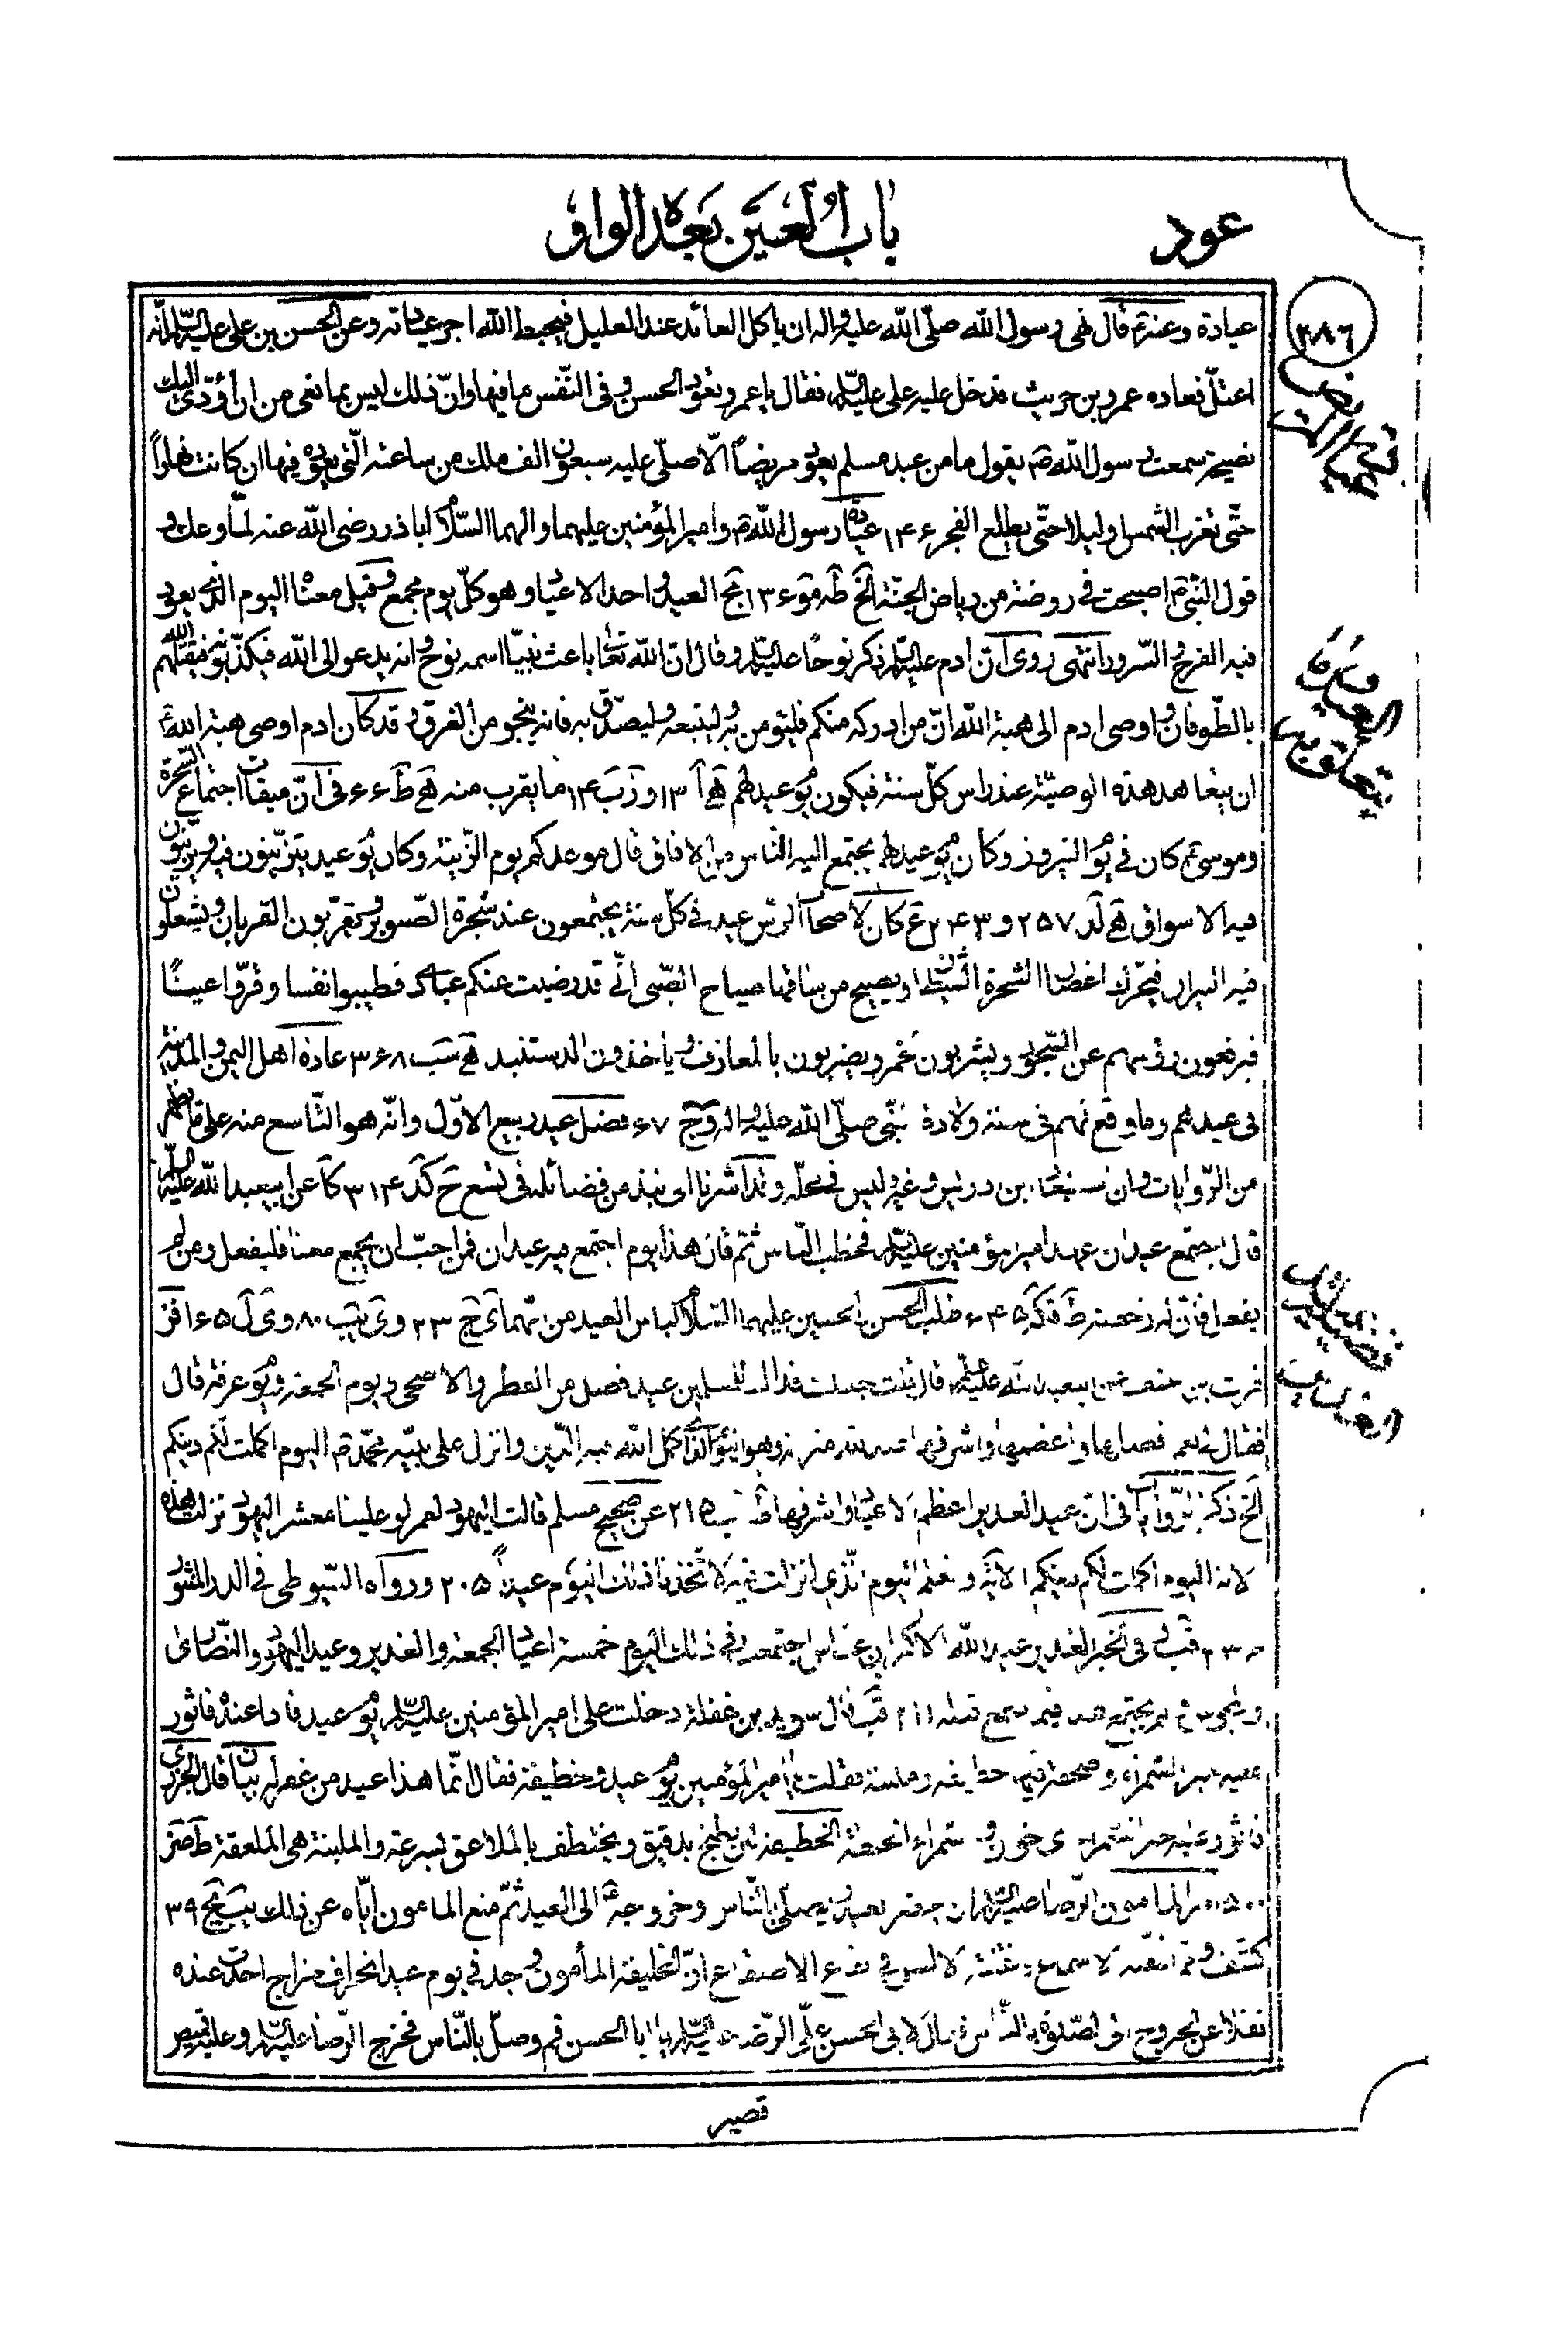 عود
باب العين بعده الواو
٢٨٦
عيادة وعنه ع قال نهى رسول الله صلّى الله عليه واله ان ياكل العائد عند العليل فيحبط الله اجر عيادته وعن الحسن بن على عليه السّلم انّه
اعتلّ فعاده عمرو بن حريث فدخل عليه على عليه السّلم فقال يا عمرو تعود الحسن وفى النّفس ما فيها وانّ ذلك ليس بمانعى من ان اؤدّى اليك
نصيحة سمعت رسول الله ص يقول ما من عبد مسلم يعود مريضاً الّا صلّى عليه سبعون الف ملك من ساعته الّتى يعوده فيها ان كانت نهاراً
حتّى تغرب الشمس او ليلا حتّى يطلع الفجر ١٤٦ عيادة رسول الله ص وامير المؤمنين عليهما والهما السّلام اباذر رضى الله عنه لمّا وعك و
قول النّبىّ ص اصبحت فى روضة من رياض الجنّة الخ طه مو ١٣٦ مج العيد واحد الاعياد وهو كلّ يوم مجمع وقيل معناه اليوم الّذى يعود
فيه الفرح والسّرور انتهى روى انّ ادم عليه السّلم ذكر نوحًا عليه السّلم وقال انّ الله تعالى باعث نبيّا اسمه نوح وانه يدعو الى الله فيكذّبونه فيقتلهم الله
بالطّوفان واوصى ادم الى هبة الله انّ من ادركه منكم فليؤمن به وليتبعه وليصدّق به فانه ينجو من الغرق وقد كان ادم اوصى هبة الله
ان يتعاهد هذه الوصيّة عند راس كلّ سنة فيكون يوم عيد لهم هج ا ١٣ و زب ١٤ ما يقرب منه هج ط ٦٦ فى انّ ميقات اجتماع السّحرة
وموسى ع كان فى يوم النيروز وكان يوم عيد لهم يجتمع اليه الناس من الافاق قال موعدكم يوم الزّينة وكان يوم عيد يتزيّنون فيه ويزيّنون
فيه الاسواق هج لد ٢٥٧ و ٢٤٣ ع كان لاصحاب الرّس عيد فى كلّ سنة يجتمعون عند شجرة الصّنوبر ويقرّبون القربان ويشعلون
فيه النيران فيحرّك اغصان الشجرة الشيطان ويصيح من ساقها صياح الصّبى انّى قد رضيت عنكم عبادى فطيبوا نفسا وقرّوا عينًا
فيرفعون رؤسهم عن السّجود ويشربون الخمر ويضربون بالمعازف وياخذون الدستبند هج سب ٣٦٨ عادة اهل اليمن والمدينة
فى عيدهم وما وقع لهم فى سنة ولادة النّبى صلّى الله عليه واله و ج ٦٧ فضل عيد ربيع الاوّل وانّه هو التّاسع منه على ما يظهر
من الرّوايات وان استبعاد ابن ادريس وغيره ليس فى محلّه وقد اشرنا الى نبذ من فضائله فى تسع ح كد ٣١٤ كا عن ابيعبد الله عليه السّلم
قال اجتمع عيدان على عهد امير المؤمنين عليه السّلم فخطب النّاس ثمّ قال هذا يوم اجتمع فيه عيدان فمن احبّ ان يجمع معنا فليفعل ومن لم
يفعل فانّ له رخصة ط قكر ٦٤٥ طلب الحسن والحسين عليهما السّلام لباس العيد من امّهما ى ج ٢٣ وى يب ٨٠ وى ل ٦٥ افز
فرات بن عن ابيعبد الله عليه السّلم قال قلت جعلت فداك للمسلمين عيد افضل من الفطر والاضحى ويوم الجمعة ويوم عرفة قال
فقال لى نعم افضلها واعظمها واشرفها عند الله منزلة وهو اليوم الّذى اكمل الله فيه الدّين وانزل على نبيّه محمّد ص اليوم اكملت لكم دينكم
الخ ذكر الرّوايات فى انّ عيد الغدير اعظم الاعياد واشرفها ط ٢١٥ عن صحيح مسلم قالت اليهود لعمر لو علينا معشر اليهود نزلت هذه
الاية اليوم اكملت لكم دينكم الاية ونعلم اليوم الّذى انزلت فيه لاتّخذنا ذلك اليوم عيداً ٢٠٥ ورواه السّيوطى فى الدر المنثور
قب فى الخبر الغدير عيد الله الاكبر ابن عباس اجتمعت فى ذلك اليوم خمسة اعياد الجمعة والغدير وعيد اليهود والنّصارى
والمجوس ولم يجتمع هذا فيما سمع قبله ٢١١ قب قال سويد بن غفلة دخلت على امير المؤمنين عليه السّلم يوم عيد فاذا عنده فاثور
عليه خبز السّمراء وصحفة فيها خطيفة وملبنة فقلت يا امير المؤمنين يوم عيد وخطيفة فقال انّما هذا عيد من غفر له بيان قال الجزرى
فاثور عليه خبز السّمراء اى خوان و السّمراء الحنطة الخطيفة لبن يطبخ بدقيق ويختطف بالملاعق بسرعة والملبنة هى الملعقة ط صز
٥٠٠ امر المامون الرّضا عليه السّلم ان يحضر العيد ويصلّى بالنّاس وخروجه الى العيد ثمّ منع المامون ايّاه عن ذلك يب يج ٣٩
كشف وممّا الاسماع الاصقاع انّ الخليفة المأمون وجد فى يوم عيد انحراف مزاج احدث عنده
ثقلا عن الخروج الى الصّلوة بالناس فقال لابى الحسن على الرّضا عليه السّلم يا ابا الحسن قم وصلّ بالنّاس فخرج الرّضا عليه السّلم وعليه قميص
قصير
العيد وما
يتعلق به